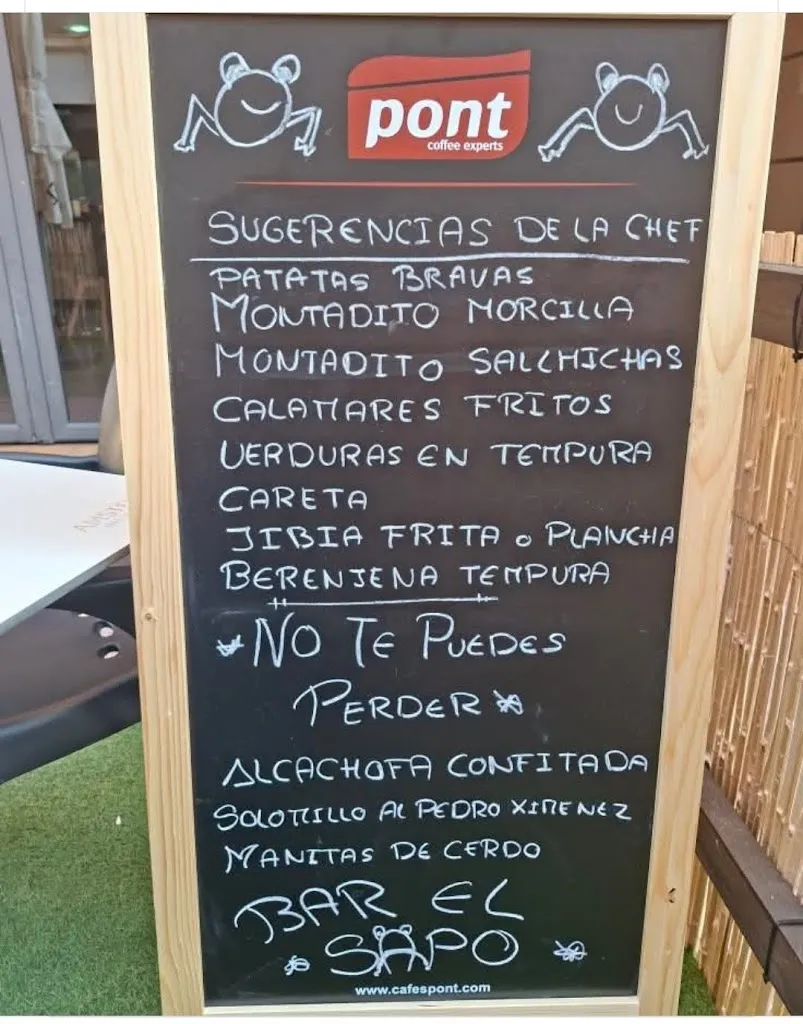 pont
coffee experts
SUGERENCIAS DE LA CHEF
PATATAS BRAVAS
MONTADITO MORCILLA
MONTADITO SALCHICHAS
CALAMARES FRITOS
VERDURAS EN TEMPURA
CARETA
JIBIA FRITA o PLANCHA
BERENJENA TEMPURA
*NO TE PUEDES
PERDER*
ALCACHOFA CONFITADA
SOLOMILLO AL PEDRO XIMENEZ
MANITAS DE CERDO
BAR EL
SAPO
www.cafespont.com